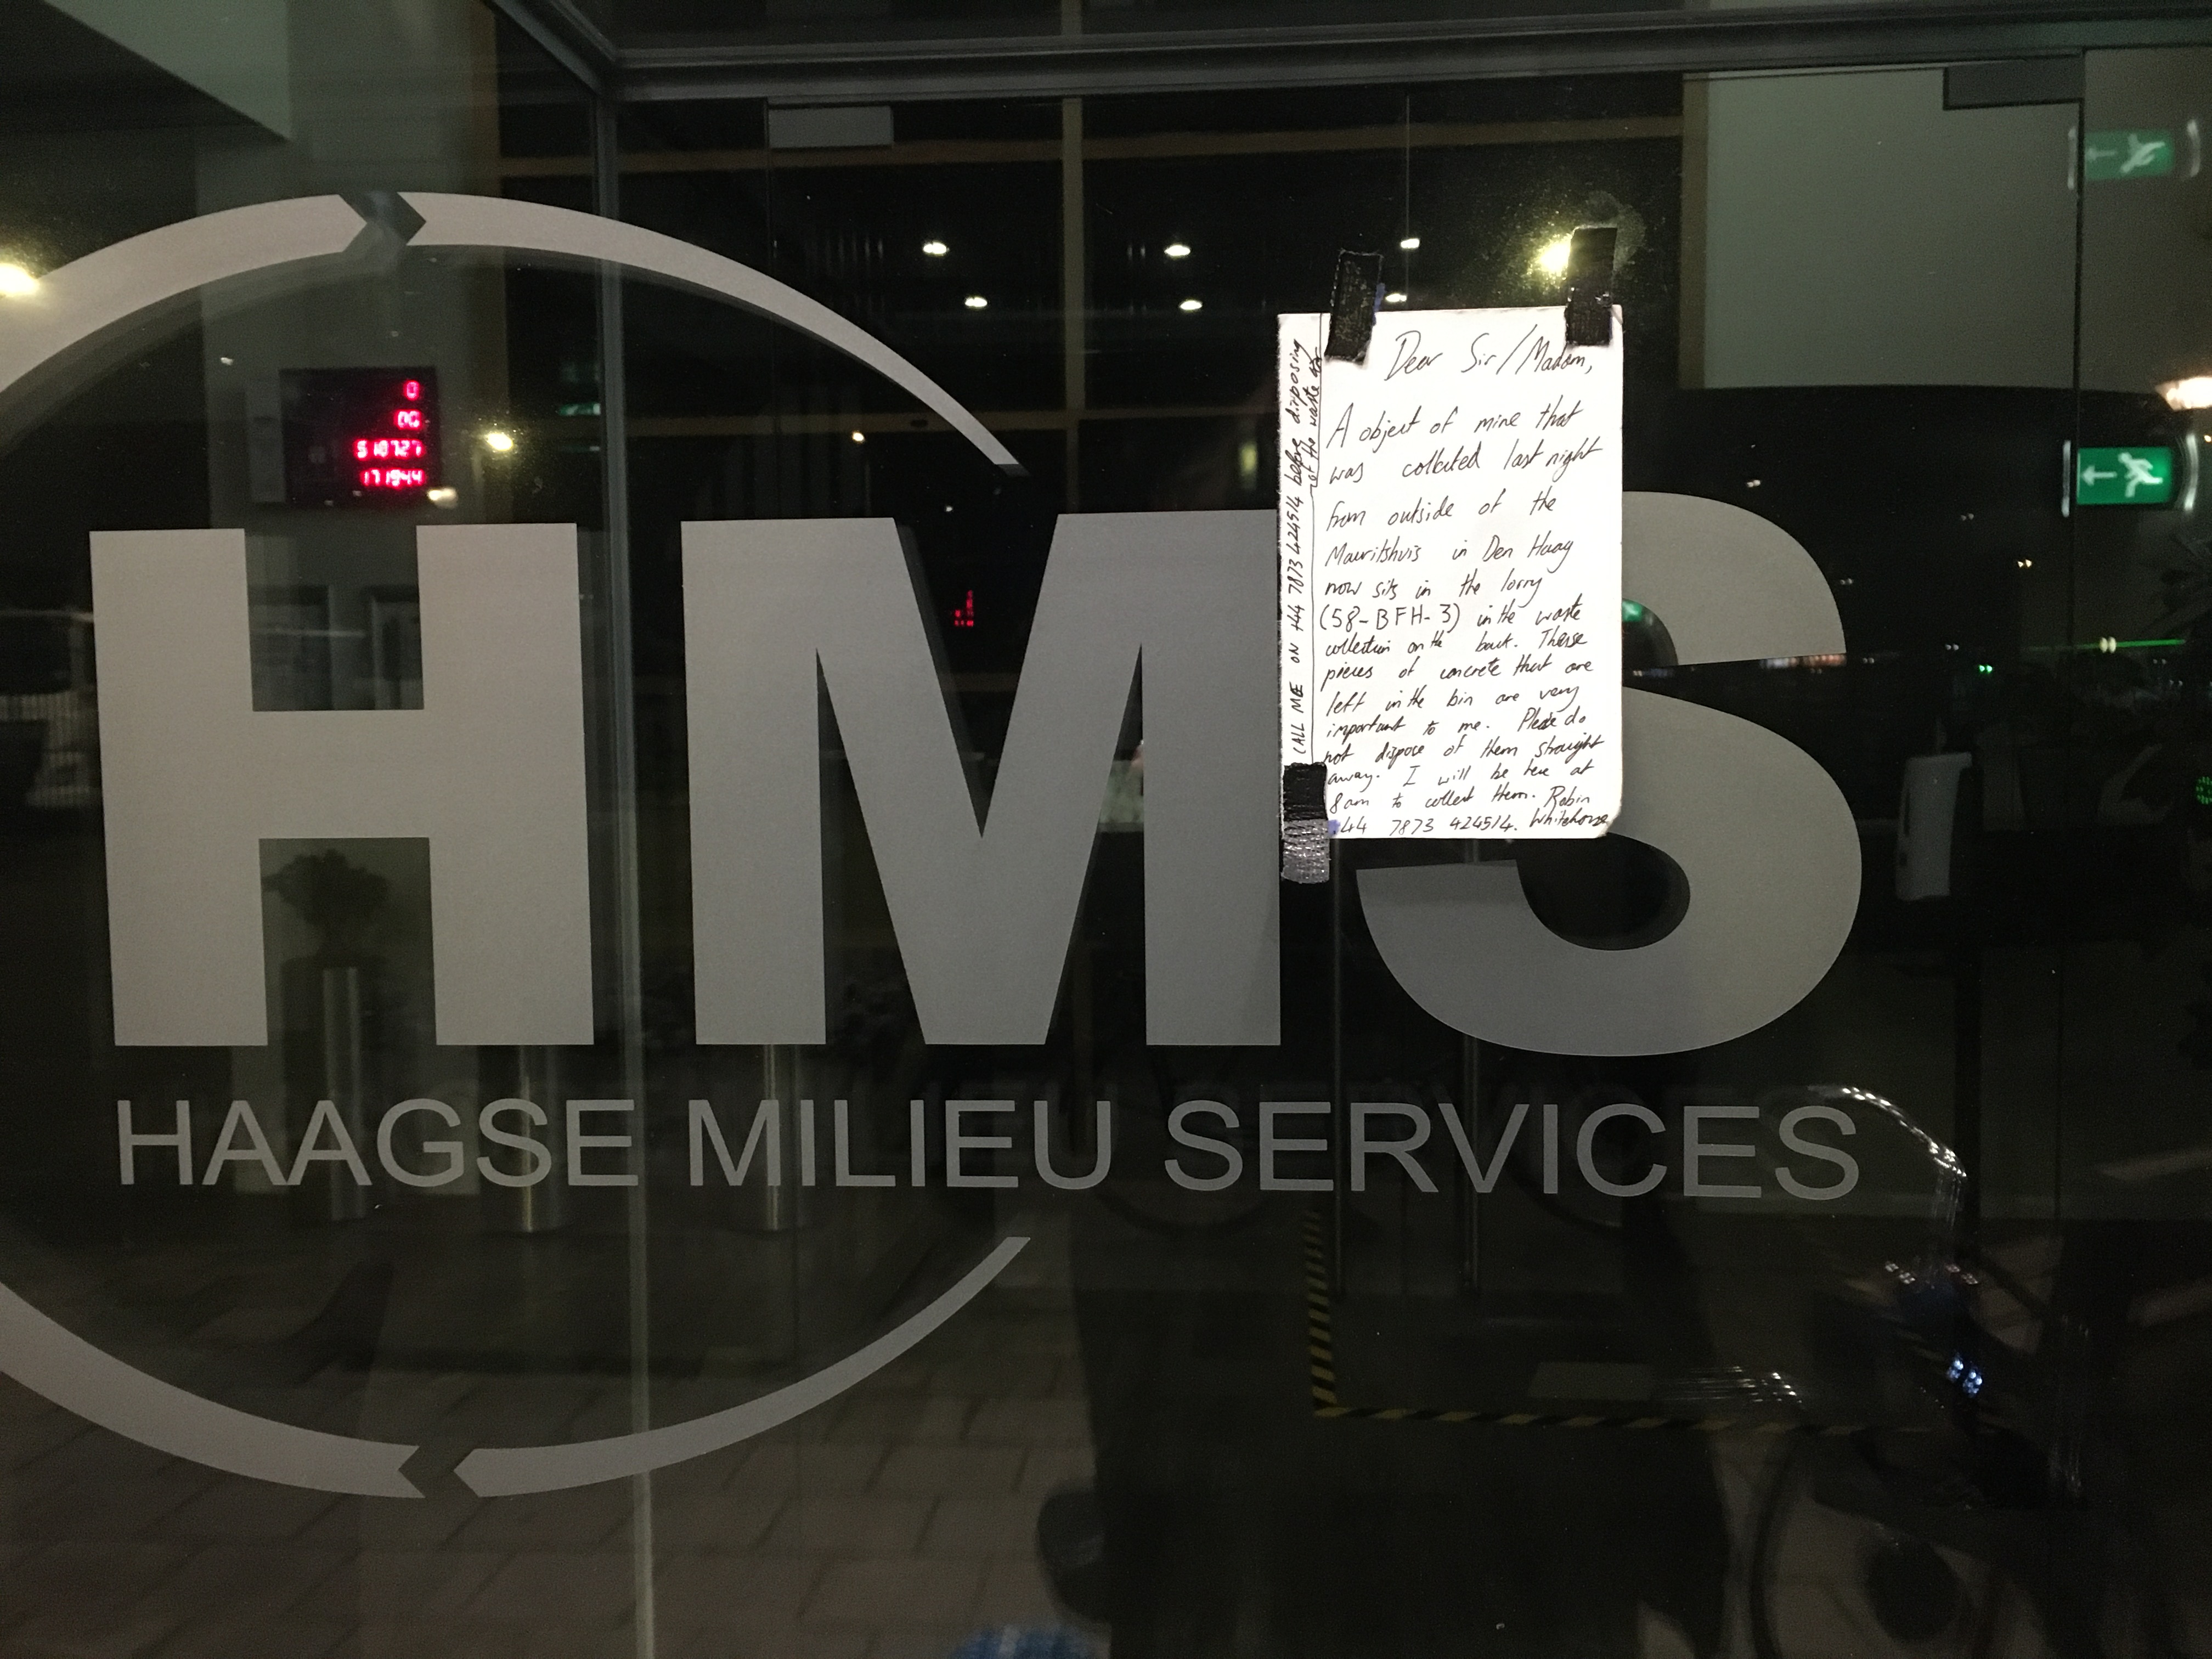 0
00
518727
171944
HMS
HAAGSE MILIEU SERVICES
Dear Sir/Madam,
A object of mine that
was collected last night
from outside of the
Mauritshuis in Den Haag
now sits in the lorry
(58-BFH-3) in the waste
collection on the back. These
pieces of concrete that are
left in the bin are very
important to me. Please do
not dispose of them straight
away. I will be here at
8am to collect them. Robin
44 7873 424514. Whitehorse
CALL ME ON +44 7873 424514 before disposing
of the waste